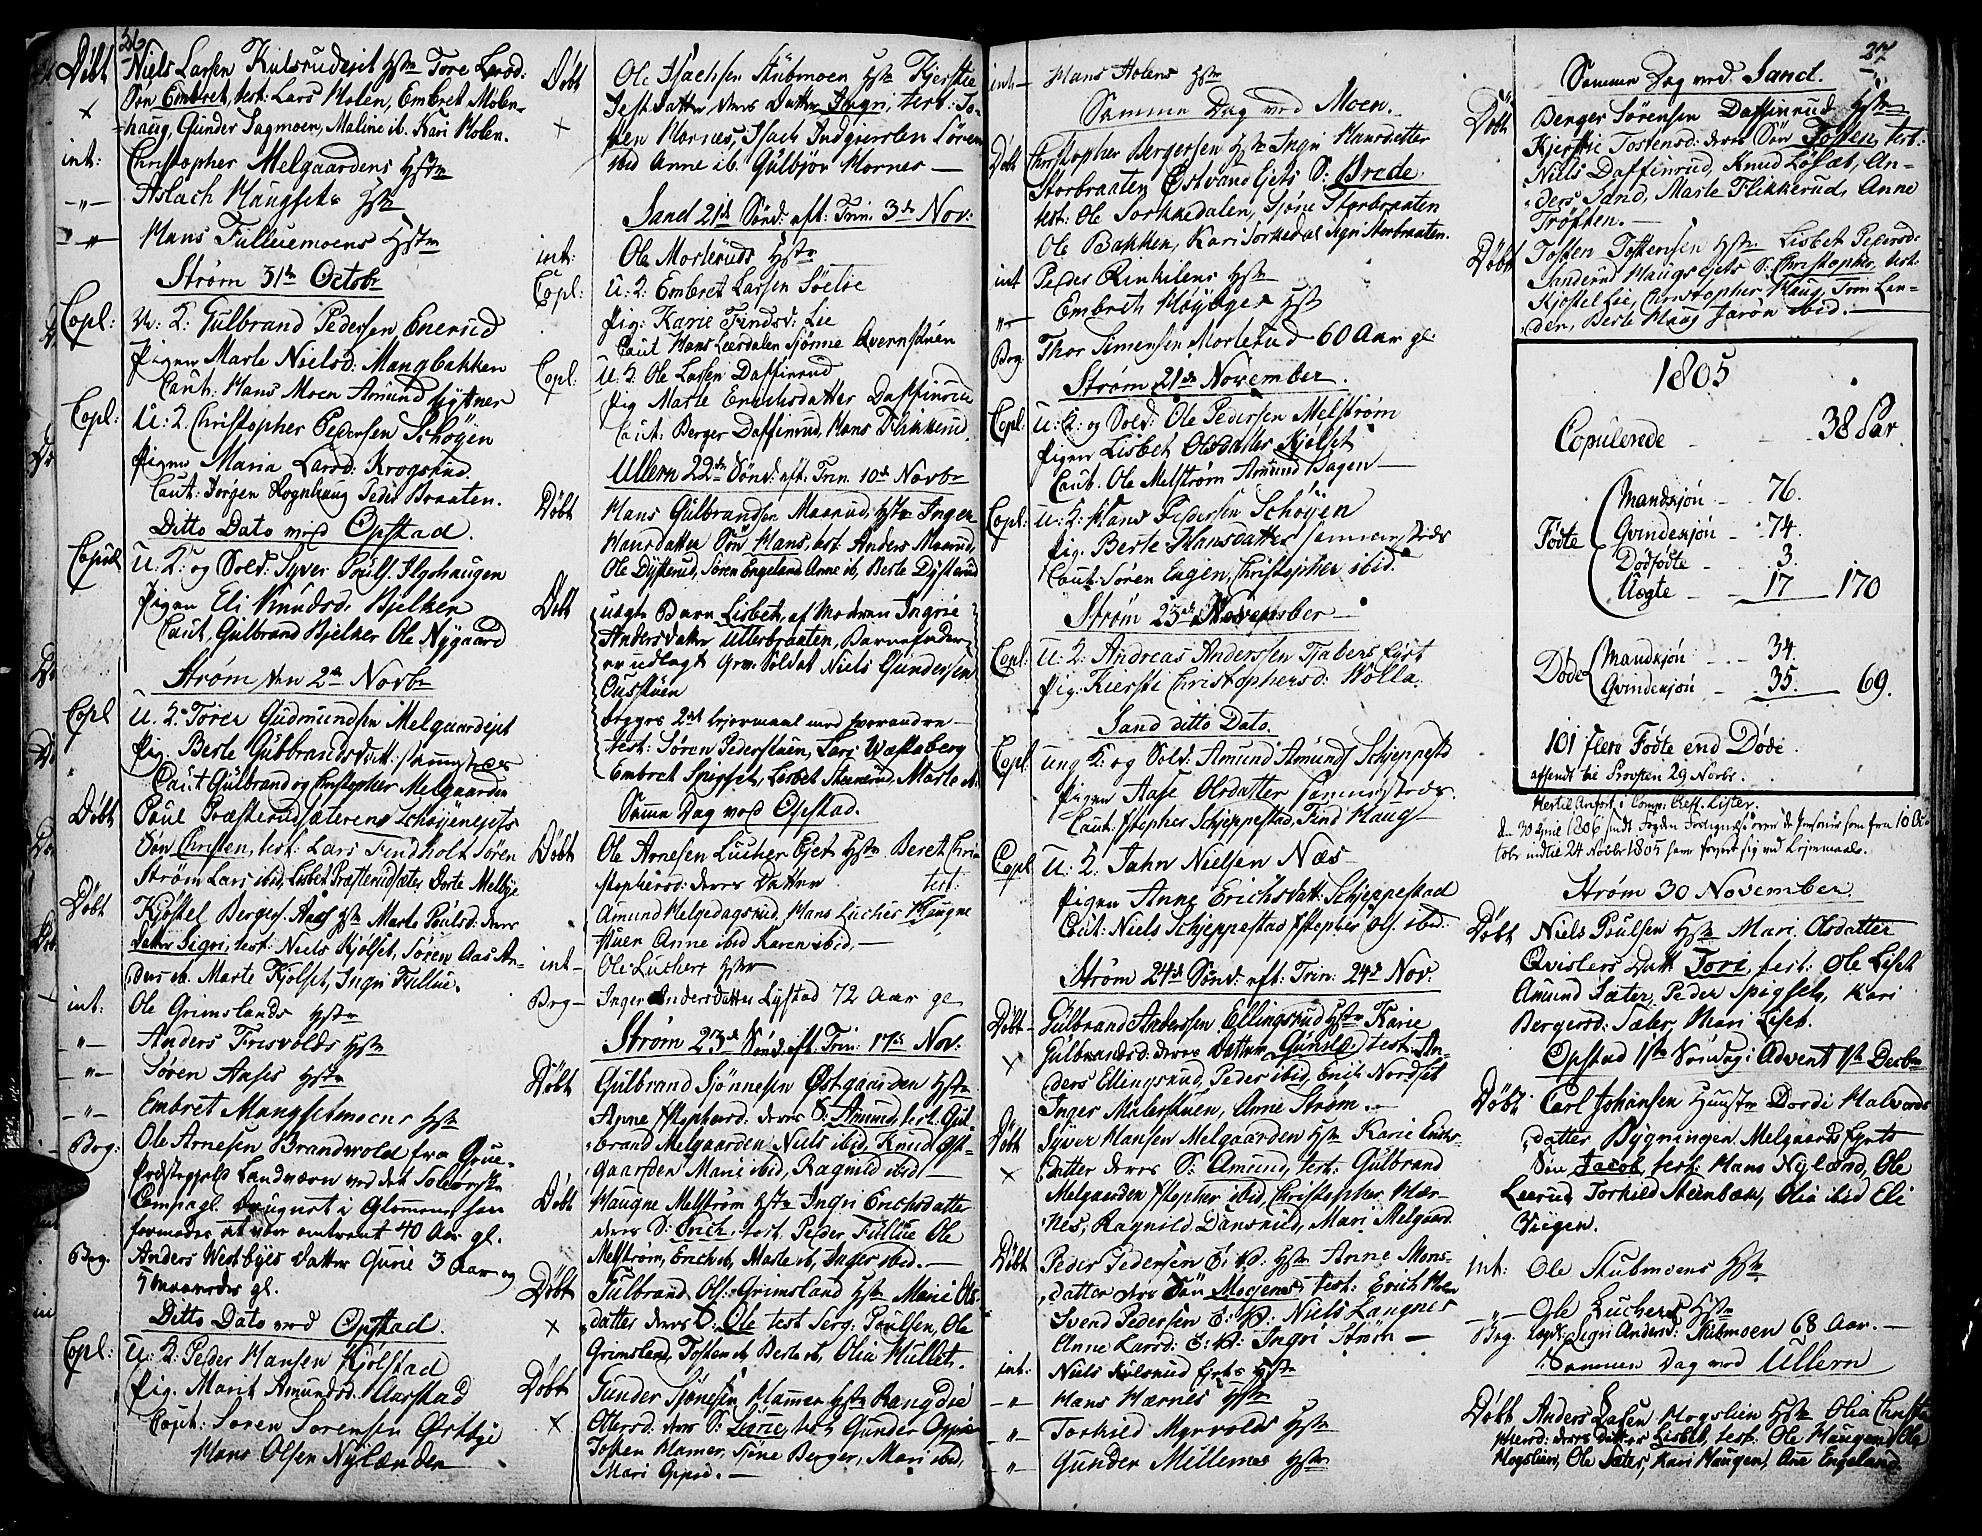 26
Døbt Niels Larsen Kulsrudeiet Hstr Tore Larsd:
Søn Embret, test: Lars Holen, Embret Molen-
haug, Gunder Sagmoen, Maline ib. Kari Holen.
int: Christopher Melgaardens Hstr
-"- Aslach Haugsets Hstr
-"- Hans Fulluemoens Hstr
Strøm 31te Octobr
Copl: U: K: Gulbrand Pedersen Enerud
Pigen Marte Nielsd: Mangbakken
Caut: Hans Moen Amund Gyttner
Copl: U: K: Christopher Pedersen Schøyen
Pigen Maria Larsd: Krogstad
Caut: Jørgen Rognhaug Peder Braaten.
Ditto Dato med Opstad.
Copul U: K: og Sold: Syver Poulsen Ilgshaugen
Pigen Eli Knudsd: Bjelker
Caut, Gulbrand Bjelker Ole Nygaard
Strøm den 2den Novbr
Copl U: K: Torer Gudmundsen Melgaardeiet
Pig. Berte Gulbrandsdatt: sammestæds
Caut Gulbrand og Christopher Melgaarden
Døbt Poul Præsterudsæterens Schøyeneiets
Søn Christen, test: Lars Findholt Søren
Strøm Lars ibid, Lisbet Præsterudsæter Dorte Melbye
Døbt Kjøstel Bergers. Aaes Hstr Marte Poulsd: deres
Datter Sigri, test: Niels Kjolset, Søren Aas An-
ders ib. Marte Kjolset, Ingri Fullue.
int: Ole Grimslands Hstr
-"- Anders Frisvolds Hstr
-"- Søren Aases Hstr
-"- Embret Mangsetmoens Hstr
Beg: Ole Arnesen Brandvold fra Grue
Præstegield Landværn ved det Soløerske
Compagl. druknet i Glomen, han
formodes at være omtrent 40 Aar gl.
Beg. Anders Westbyes Datter Gurie 3 Aar og
5 maaneder gl.
Ditto Dato ved Opstad.
Copl: U: K: Peder Hansen Kjølstad
Pig. Marit Amundsd. Aarstad
Caut: Søren Sørensen Østbye
Hans Olsen Nylænder
Døbt Ole Isachsen Stubmoen Hstr Kjerstie
Jensdatter deres Datter Ingri, test: Jo-
Hornes, Isach Søren
ibid Anne ib. Gulbjør Hornes —
Sand 21de Sønd: eft: Trin: 3de Nov:
int: Ole Morteruds Hstr
Copl: U: K: Embret Larsen Søelie
Pig: Karie Findsd: Lie
Caut Hans Leerdalen Tjønne Avernstuen
Copl: U: K: Ole Larsen Daffinrud
Pig Marte Erichsdatter Daffinrud
Caut: Berger Daffinrud, Hans Flikkerud.
Ullern 22de Sønd: eft. Trin. 10de Novbr
Døbt Hans Gulbrandsen Maarud, Hstr Inger
Hansdatter Søn Hans, test Anders Maarud,
Ole Dysterud, Søren Engeland Anne ib, Berte Dysterud
Døbt uægte Barn Lisbeth, af Moderen Ingrie
Andersdatter Ullerbraaten, Barnefader
er udlagt Grv. Soldat Niels Gundersen
Ousstuen
begges 2det Leiermaal med hverandre —
test: Søren Pederstuen, Lars Westaberg
Embret Spigset, Lisbet Marte ib.
Samme Dag ved Opstad.
Døbt Ole Arnesen Lucher Ejet Hstr Beret Chri-
stophersd: deres Datter test:
Amund Helgedagsrud, Hans Lucher, Haugne
stuen Anne ibid Karen ibid.—
int- Ole Luchers Hstr
Beg- Inger Andersdatter Lystad 72 Aar gl
Strøm 23de Sønd: eft. Trin: 17de Nov:
Døbt Gulbrand Tjønnesen Østgaarden Hstr
Anne Stephersd. deres S: Amund, test. Gul-
brand Melgaarden Niels ibid, Knud Øst-
gaarden Marie ibid, Ragnild ibid —
Døbt Haugne Melstrøm Hstr Ingri Erichsdatter
deres S: Erich, test. Peder Fullue Ole
Melstrøm, Erich ib, Marte ib, Inger ibid.—
Døbt Gulbrand Ols: Grimsland Hstr Marie Ols
datter deres S. Ole test Serg: Poulsen, Ole
Grimsland, Tosten ib Berte ib, Olia Mullet.
Døbt Gunder Tjønesen Hammer Hstr Rangdie
Ottersd: deres S: test Gunder Oppi
Tosten Hamer, Tjøne Berger, Mari ibid,
Mari —
int— Hans Holens Hstr
Samme Dag ved Moen.
Døbt Christopher Bergersen Hstr Ingri Hansdatter
Storbraaten Østvand Ejets S: Brede,
test: Ole Torkkedalen, Tjøne Storbraaten
Ole Bakken, Kari Torkedal Agn Storbraaten.
int Peder Rinhilens Hstr
"- Embret Høybyes Hstr
Beg- Thor Simensen Morterud 60 Aar gl.
Strøm 21de November.
Copl: U: K: og Sold: Ole Pedersen Melstrøm
Pigen Lisbet Olsdatter Kjolset
Caut. Ole Melstrøm Amund Hagen —
Copl: U: K: Hans Pedersen Schøyen
Pig. Berte Hansdatter sammestæds
Caut: Søren Engen, Christopher ibid.
Strøm 23de November —
Copl: U: K: Andreas Anderssen Tjaberg Eiet
Pig: Kiersti Christophersd: Holla.
Sand ditto Dato.
Copl: ung K: og Sold: Amund Amunds Schjeppestad
Pigen Aase Olsdatter sammestæds.
Caut. Stepher Schjeppestad, Find Haug —
Copl U: K: Jahn Nielsen Næs —
Pigen Anne Erichsdatt: Schjeppestad
Caut: Niels Schjeppestad Stepher Ols. ibid:
Strøm 24de Sønd: eft: Trin: 24de Nov.
Døbt- Gulbrand Anderssen Ellingsrud Hstr Karie
Gulbrandsd: deres Datter Gunild test: An-
ders Ellingsrud, Peder ibid, Erik Nordset
Inger Malerstuen, Anne Strøm.—
Døbt Syver Hansen Melgaarden Hstr Karie Erichs-
datter deres S: Amund, test: Gulbrand
Melgaarden Stepher ibid, Christopher Hær-
nes, Ragnild Dansrud, Mari Melgaard.
Døbt Peder Pedersen E: W: Hstr Anne Mons-
datter deres Søn Mogens, test: Erich Holm
Svend Pedersen E: W: Niels Langnes
Anne Larsd: E: W: Ingri Strøm —
int: Niels Kulsrud Ejets Hstr
-"- Hans Hærnes Hstr
-"- Torkild Myrvolds Hstr
-"- Gunder Millemes Hstr
27
Samme Dag ved Sand.
Døbt Berger Sørensen Daffinrud Hstr
Kjerstie Tostensd: deres Søn Tosten test:
Niels Daffinrud, Knud Løsæt, An-
ders Sand, Marte Flikkerud, Anne
Trøften.—
Døbt Tosten Tostensen Hstr Lisbet Pedersd:
Sanderud Haugs Ejets S: Christopher, test.
Kjøstel Lie, Christopher Haug, Tron Lan-
den, Berte Haug Jarøn ibid.—
1805
Copulerede - - 38 Par.
Fødte Mandkjøn - 76.
Qvindekjøn - 74.
Dødfødte - - 3.
Uægte - - 17 — 170
Døde Mandkjøn - - - 34.
Qvindekjøn - 35. — 69.
101 flere Fødte end Døde.
afsendt til Provsten 29 Novbr.
Hertil Anført i Comp: Cheff. Lister.
d. 30 April 1806 sendt Fogden Fortegnelse over de Personer som fra 10 Oc-
tobr indtil 24 Nobbr 1805 have forseet sig ved Leiermaale.
Strøm 30 November.
Døbt Niels Poulsen Hstr Mari Olsdatter
Qvislers Datt: Tori, test: Ole Liset
Amund Sæter, Peder Spigset, Kari
Bergersd: Sæter, Mari Liset.
Opstad 1ste Søndag i Advent 1ste Decbr
Døbt. Carl Johansen Huustr Dordi Halvords
datter Bygningen Melgaards Ejets
Søn Jacob, test: Hans Nylænd, Ole
Leerud Torkild Steinbæk, Olia ibid Eli
Viigen.
int: Ole Stubmoens Hstr
"- Ole Luchers Hstr
Beg. Sigri Andersd: Stubmoen 68 Aar.—
Sammen Dag ved Ullern
Døbt Anders Larsen Mogslien Hstr Olia Christo-
phersd: deres Datter Lisbet, test: Ole Haugen, Ole
Mogslien, Ole Sæter, Kari Haugen, Ane Engeland.